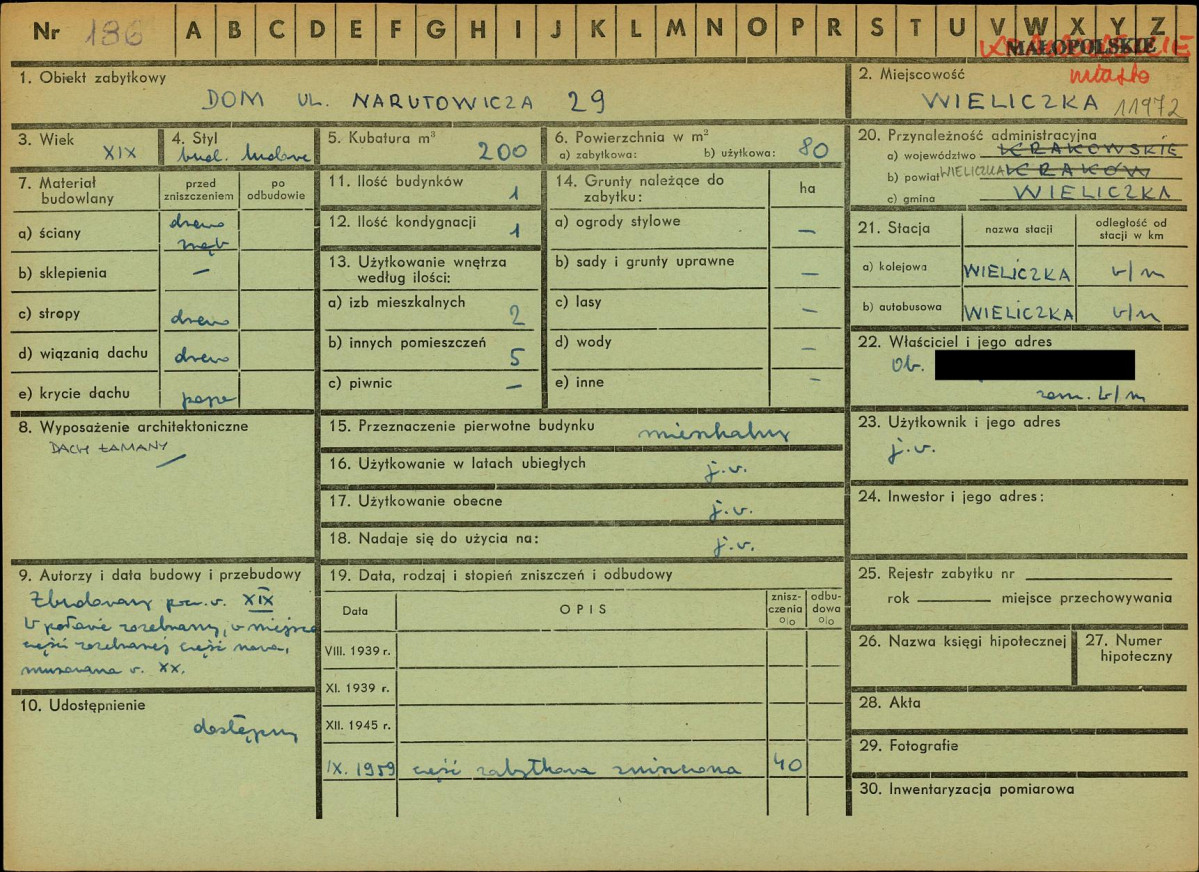 Nr 136 A B C D E F G H I J K L M N O P R S T U V W X Y Z
MAŁOPOLSKIE
miasto
1. Obiekt zabytkowy
DOM UL. NARUTOWICZA 29
2. Miejscowość
WIELICZKA 11972
3. Wiek
XIX
4. Styl
bud. ludowe
5. Kubatura m³
200
6. Powierzchnia w m²
a) zabytkowa: b) użytkowa: 80
20. Przynależność administracyjna
a) województwo KRAKOWSKIE
b) powiat WIELICZKA KRAKÓW
c) gmina WIELICZKA
7. Materiał budowlany
przed zniszczeniem
po odbudowie
a) ściany drewno zrąb
b) sklepienia –
c) stropy drewno
d) wiązania dachu drewno
e) krycie dachu papa
11. Ilość budynków 1
12. Ilość kondygnacji 1
13. Użytkowanie wnętrza
według ilości:
a) izb mieszkalnych 2
b) innych pomieszczeń 5
c) piwnic –
14. Grunty należące do
zabytku:
ha
a) ogrody stylowe –
b) sady i grunty uprawne –
c) lasy –
d) wody –
e) inne –
21. Stacja
nazwa stacji
odległość od
stacji w km
a) kolejowa WIELICZKA w/m
b) autobusowa WIELICZKA w/m
22. Właściciel i jego adres
Ob.
zam. w/m
8. Wyposażenie architektoniczne
DACH ŁAMANY
15. Przeznaczenie pierwotne budynku mieszkalny
16. Użytkowanie w latach ubiegłych j.w.
17. Użytkowanie obecne j.w.
18. Nadaje się do użycia na: j.w.
23. Użytkownik i jego adres
j.w.
24. Inwestor i jego adres:
9. Autorzy i data budowy i przebudowy
Zbudowany w XIX
W połowie rozebrany, w miejsce
części rozebranej część nowa,
murowana w XX.
10. Udostępnienie
dostępny
19. Data, rodzaj i stopień zniszczeń i odbudowy
Data OPIS
znisz-
czenia
%
odbu-
dowa
%
VIII. 1939 r.
XI. 1939 r.
XII. 1945 r.
IX. 1959 część zabytkowa zniszczona 40
25. Rejestr zabytku nr
rok miejsce przechowywania
26. Nazwa księgi hipotecznej
27. Numer
hipoteczny
28. Akta
29. Fotografie
30. Inwentaryzacja pomiarowa